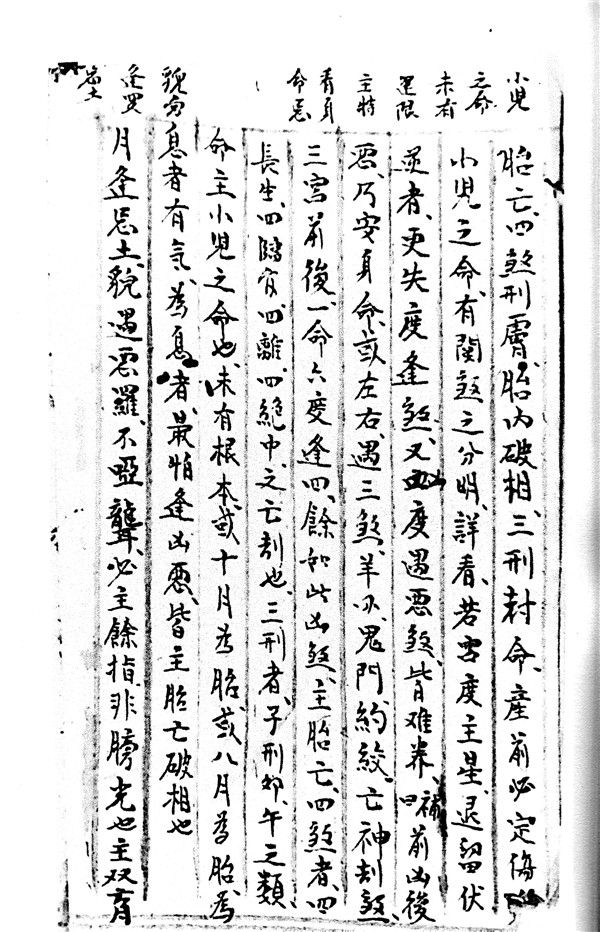 小兒
之命
未有
運限
主特
看身
命忌
貌旁
逢四
忌土
胎亡、四煞刑膚、胎内破相、三刑封命、産前必定傷
小児之命、有関煞之分明、詳看、若宫度主星、退留伏
逆者、更失度逢煞、又度遇悪煞、皆难养、補前凶後
悪、乃安身命、或左右、遇三煞、羊刃、鬼門、約絞、亡神刦煞、
三宫前後、一命六度逢四、餘如此凶煞、主胎亡、四煞者、四
長生、四臨官、四離、四絶中、之亡刦也、三刑者、子刑卯、午之類、
命主小児之命也、未有根本、或十月為胎、或八月為胎、為
息者有氣、為息者、最怕逢凶悪、皆主胎亡破相也
月逢忌土、貌遇悪羅、不啞聾、必主餘指、非膀光也、主双育